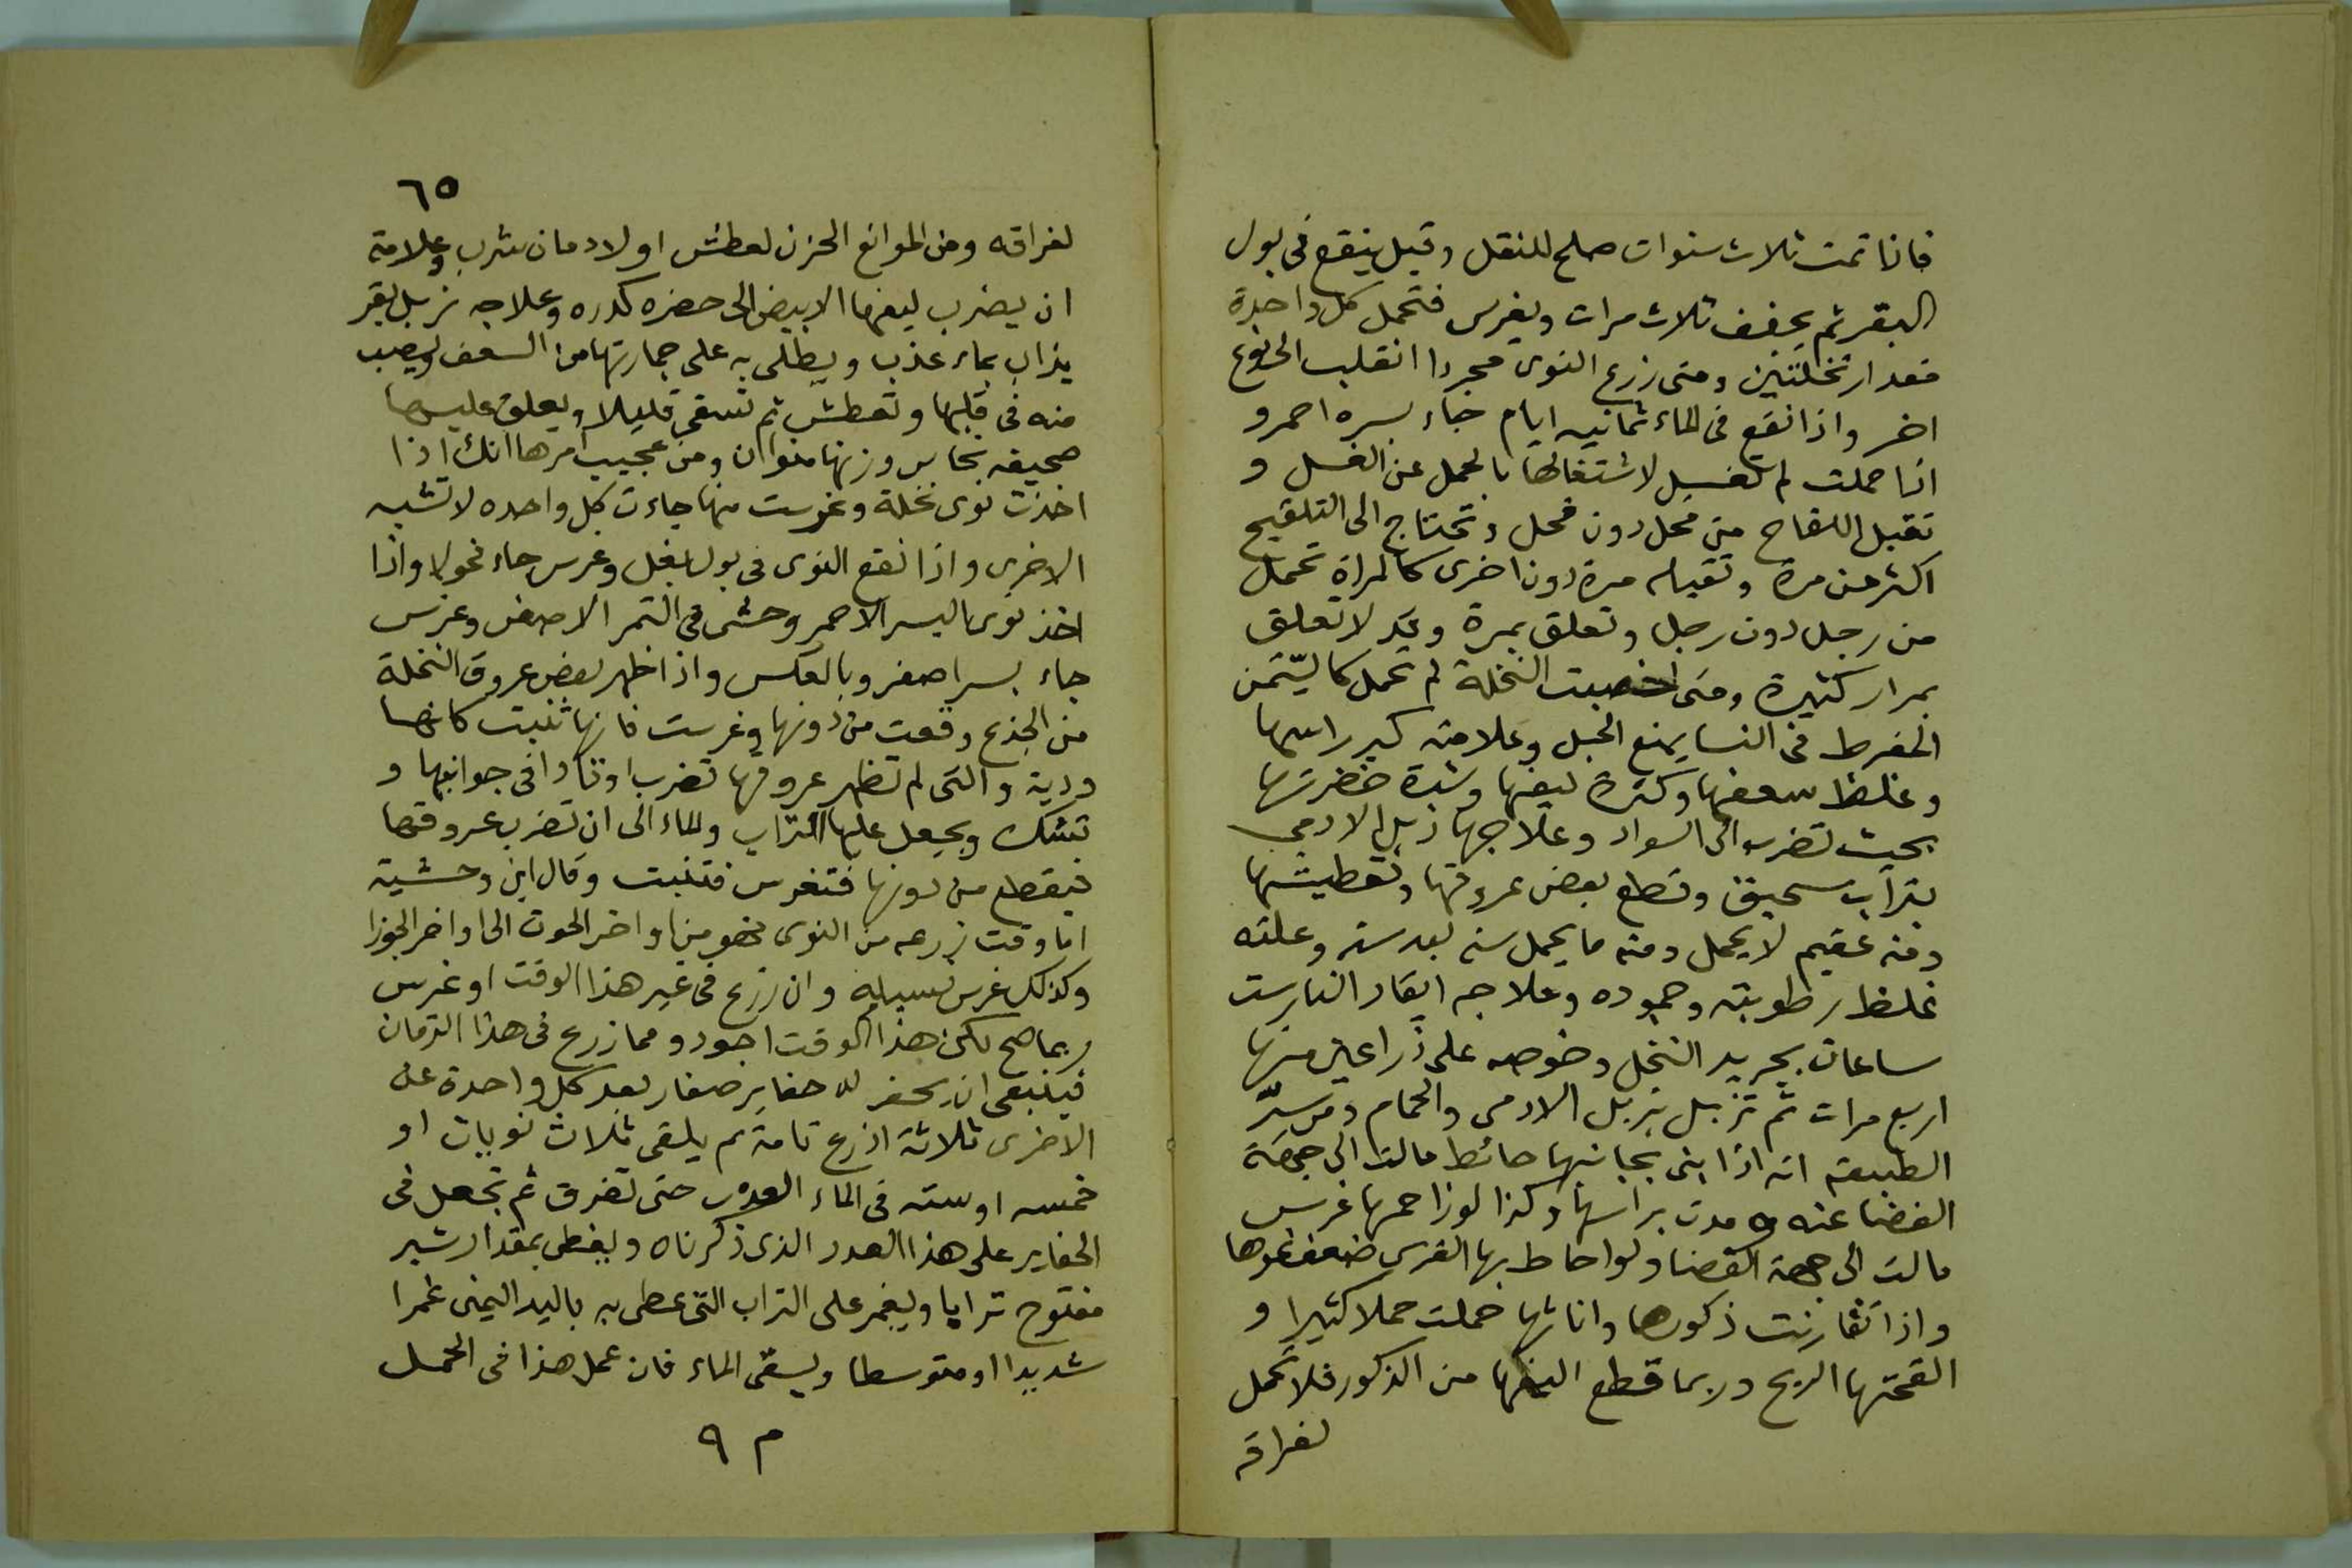 فاذا تمت ثلاث سنوات صلح للنقل وقيل ينقع فى بول
البقر ثم يجفف ثلاث مرات ويغرس فتحمل كل واحدة
مقدار نخلتين ومتى زرع النوى مجردا انقلب الى نوع
اخر واذا نقع فى الماء ثمانيه ايام جاء بسره احمر و
اذا حملت لم تفسل لاشتغالها بالحمل عن الفسل و
تقبل اللقاح من فحل دون فحل وتحتاج الى التلقيح
اكثر من مرة وتقبله مرة دون اخرى كالمراة تحمل
من رجل دون رجل وتعلق بمرة وقد لا تعلق
بمرار كثيرة ومتى اخصبت النخلة لم تحمل كالسّمن
المفرط فى النسا يمنع الحبل وعلامته كبر راسها
وغلظ سعفها وكثرة ليفها وشدة خضرتها
بحيث تضرب الى السواد وعلاجها زبل الادمى
بتراب سحيق وقطع بعض عروقها وتعطيشها
ومنه عقيم لا يحمل ومنه ما يحمل سنه بعد سنه وعلته
غلظ رطوبته وجموده وعلاجه ايقاد النار ست
ساعات بجريد النخل وخوصه على ذراعين منها
اربع مرات ثم تزبل بزبل الادمى والحمام ومن سرّ
الطبيعه انه اذا بنى بجانبها حائط مالت الى جهة
الفضا عنه ومدت براسها وكذا لو زاحمها غرس
مالت الى جهة الفضا ولو احاط بها الغرس ضعف نموها
واذا تقارنت ذكورها واناثها حملت حملا كثيرا و
القحتها الريح وربما قطع من الذكور فلا تحمل
لفراقه
٦٥
لفراقه ومن الموانع الحزن لعطش او لادمان شرب وعلامته
ان يضرب ليفها الابيض الى حضره كدره وعلاجه زبل بقر
يذاب بماء عذب ويطلى به على جمارتها من السعف ويصب
منه فى قلبها وتعطش ثم تسقى قليلا ويعلق عليها
صحيفه نحاس وزنها منوان ومن عجيب امرها انك اذا
اخذت نوى نخلة وغرست منها جاءت كل واحده لا تشبه
الاخرى واذا نقع النوى فى بول بغل وغرس جاء فحولا واذا
اخذ نوى البسر الاحمر وحشى فى التمر الاصفر وغرس
جاء بسر اصفر وبالعكس واذا ظهر بعض عروق النخلة
من الجذع وقعت من دونها وغرست فانها تنبت كانها
ودية والتى لم تظهر عروقها تضرب اوتادا فى جوانبها و
تشك ويجعل عليها التراب والماء الى ان تضرب عروقها
فيقطع من دونها فتغرس فتنبت وقال ابن وحشية
اما وقت زرعه من النوى فهو من اواخر الحوت الى اواخر الجوزا
وكذلك غرس فسيله وان زرع فى غير هذا الوقت او غرس
ربما صح لكن هذا الوقت اجود ومما زرع فى هذا الزمان
فينبغى ان يحفر له حفاير صغار بعد كل واحدة عن
الاخرى ثلاثة اذرع تامة ثم يلقى ثلاث نويات او
خمسه او سته فى الماء العذب حتى تغرق ثم تجعل فى
الحفاير على هذا العدد الذى ذكرناه ويغطى بمقدار شبر
مفتوح ترابا ويغمر على التراب التى غطى به باليد اليمنى غمرا
شديدا او متوسطا ويسقى الماء فان عمل هذا فى الحمل
م ٩